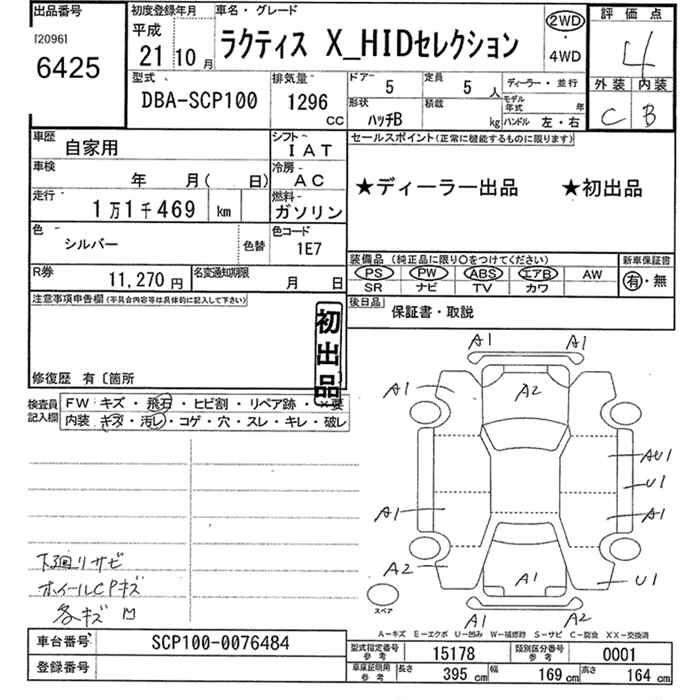 出品番号
[2096]
6425
初度登録年月
平成
21 10 月
車名・グレード
ラクティス X_HIDセレクション
2WD
・
4WD
評価点
4
外装 内装
C B
型式
DBA-SCP100
排気量
1296
CC
ドアー 5
定員 5 人
形状 ハッチB
積載 kg
ディーラー・並行
モデル年式 年
ハンドル 左・右
車歴 自家用
シフト IAT
車検 年 月( 日)
冷房 AC
走行 1万1千469 km
燃料 ガソリン
色 シルバー 色替
色コード 1E7
R券 11,270 円
名変通知期限 月 日
セールスポイント(正常に機能するものに限ります)
★ディーラー出品 ★初出品
装備品 (純正品に限り○をつけてください)
PS PW ABS エアB AW
SR ナビ TV カワ
新車保証書
有・無
後日品
保証書・取説
注意事項申告欄(不具合内容等は具体的に記入して下さい)
初出品
修復歴 有〔箇所
検査員記入欄
FW キズ・飛石・ヒビ割・リペア跡・×要
内装 キズ・汚レ・コゲ・穴・スレ・キレ・破レ
下廻リサビ
ホイールCPキズ
各キズ凹
A1 A1
A1 A2
AU1
U1
A1 A1
A2 A1 U1
A1 A2
スペア
A-キズ E-エクボ U-凹み W-補修跡 S-サビ C-腐食 XX-交換済
車台番号 SCP100-0076484
登録番号
型式指定番号 参考 15178
類別区分番号 参考 0001
車庫証明用 参考 長さ 395 cm 幅 169 cm 高さ 164 cm